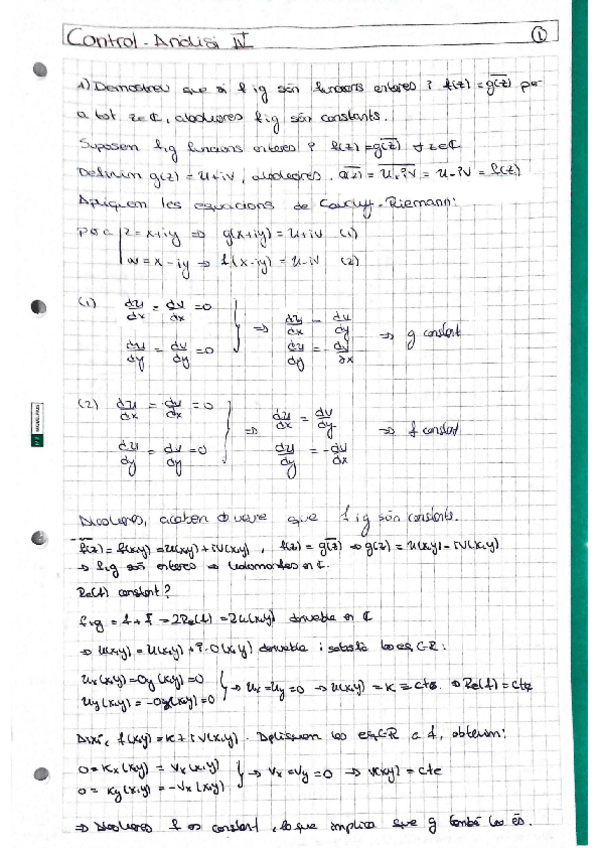 Control - Anàlisi IV
1
1) Demostreu que si f i g són funcions enteres i f(z) = \overline{g(z)} per
a tot z∈ℂ, aleshores f i g són constants.
Suposem f i g funcions enteres i f(z) = \overline{g(z)} ∀z∈ℂ
Definim g(z) = u+iv, aleshores. \overline{g(z)} = \overline{u+iv} = u-iv = f(z)
Apliquem les equacions de Cauchy-Riemann:
per a z = x+iy ⇒ g(x+iy) = u+iv (1)
w = x-iy ⇒ f(x-iy) = u-iv (2)
(1) du/dx = dv/dx = 0
du/dy = dv/dy = 0
⇒ du/dx = dv/dy
du/dy = -dv/dx
⇒ g constant
(2) du/dx = dv/dx = 0
du/dy = dv/dy = 0
⇒ du/dx = dv/dy
du/dy = -dv/dx
⇒ f constant
Aleshores, acabem de veure que f i g són constants.
f(z) = f(x,y) = u(x,y) + iv(x,y), f(z) = \overline{g(z)} ⇒ g(z) = u(x,y) - iv(x,y)
⇒ f i g són enteres ⇒ holomorfes en ℂ.
Re(f) constant?
f+g = f + \overline{f} = 2Re(f) = 2u(x,y) derivable en ℂ
⇒ u(x,y) = u(x,y) + i·0(x,y) derivable i satisfà les eq. C-R:
u_x(x,y) = 0_y(x,y) = 0
u_y(x,y) = -0_x(x,y) = 0
⇒ u_x = u_y = 0 ⇒ u(x,y) = K = cte. ⇒ Re(f) = cte
Així, f(x,y) = K + iv(x,y). Apliquem les eq. CR a f, obtenim:
0 = K_x(x,y) = v_x(x,y)
0 = K_y(x,y) = -v_x(x,y)
⇒ v_x = v_y = 0 ⇒ v(x,y) = cte
⇒ Aleshores f és constant, lo que implica que g també ho és.